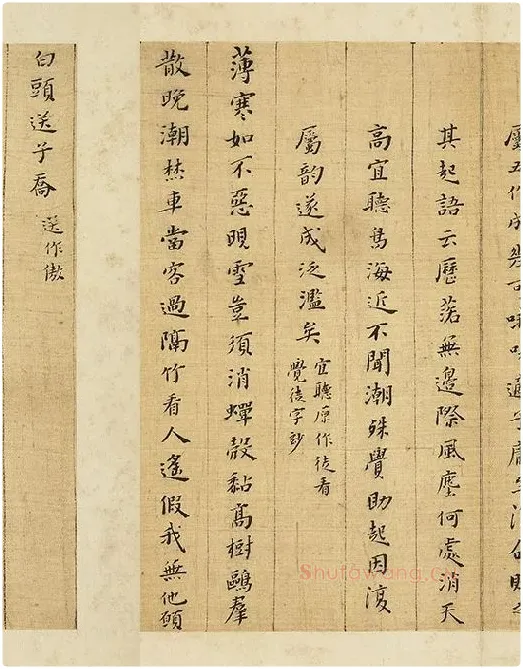 其起語云歷落無邊際風塵何處消天
高宜聽鳥海近不聞潮殊覺助起因復
屬韵遂成泛濫矣
宜聽原作徒看
覺徒字妙
薄寒如不惡晛雪豈須消蟬殼黏高樹鷗羣
散晚潮車當容過隔竹看人遙假我無他願
白頭送子喬
送作傲